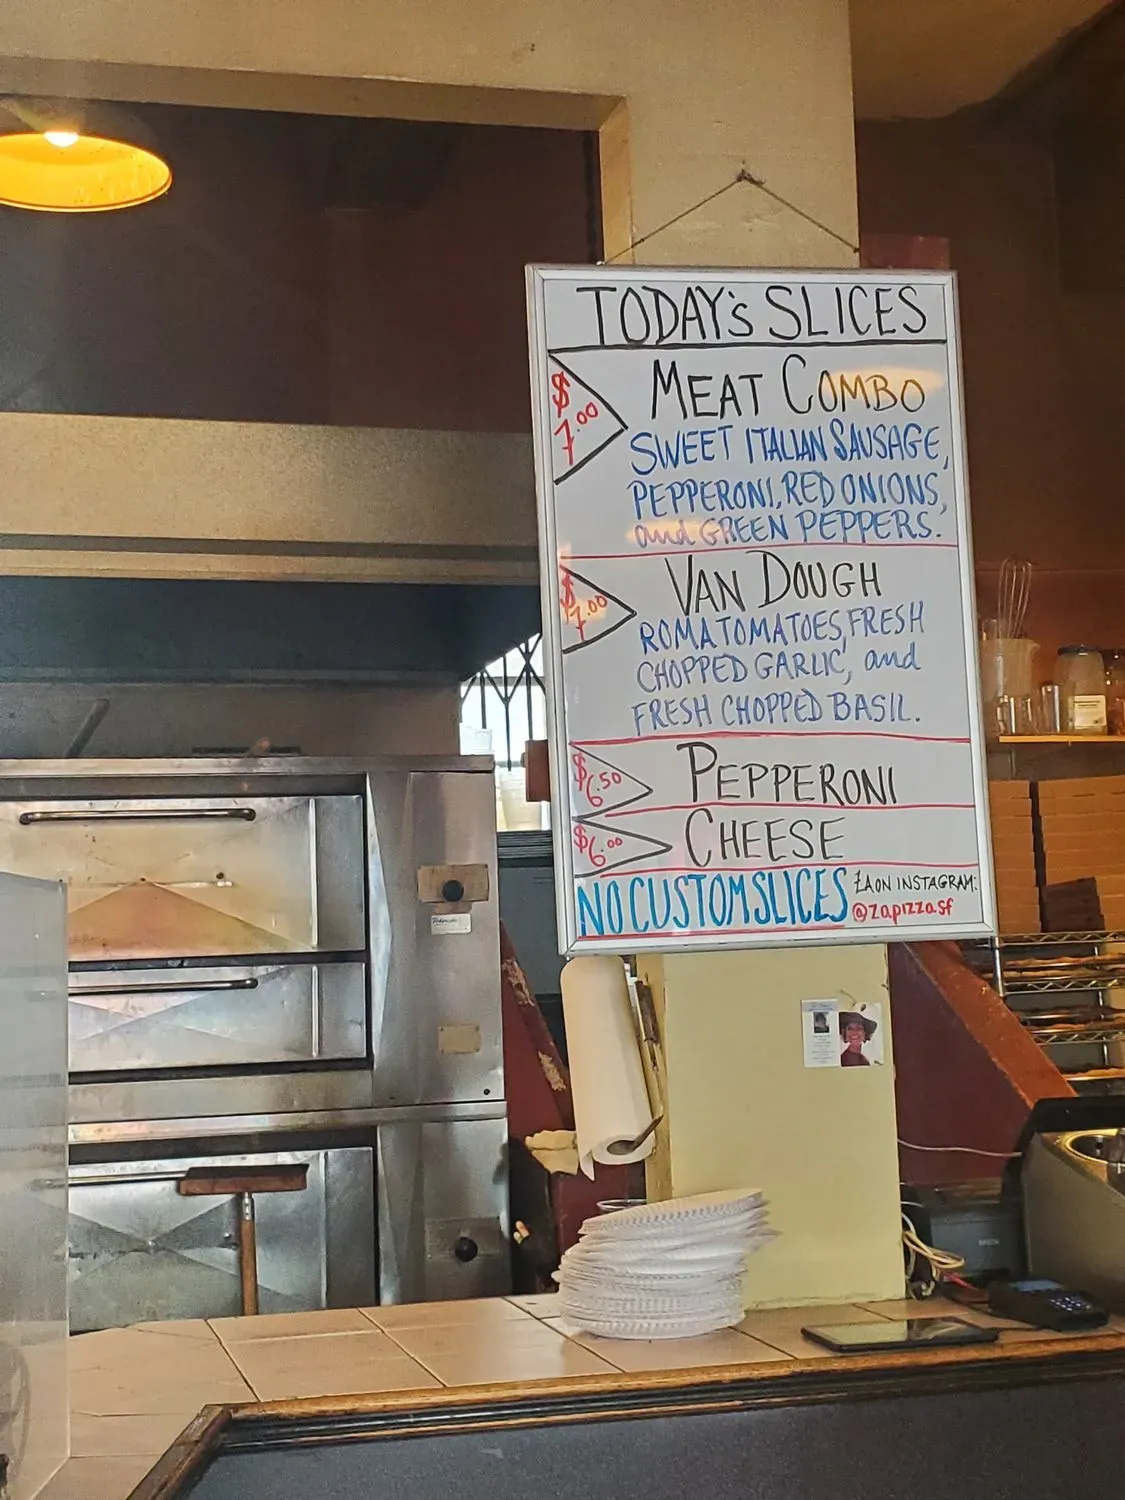 TODAY'S SLICES
$7.00
MEAT COMBO
SWEET ITALIAN SAUSAGE,
PEPPERONI, RED ONIONS,
and GREEN PEPPERS.
$7.00
VAN DOUGH
ROMA TOMATOES, FRESH
CHOPPED GARLIC, and
FRESH CHOPPED BASIL.
$6.50
PEPPERONI
$6.00
CHEESE
NO CUSTOM SLICES
ZA ON INSTAGRAM:
@zapizzasf